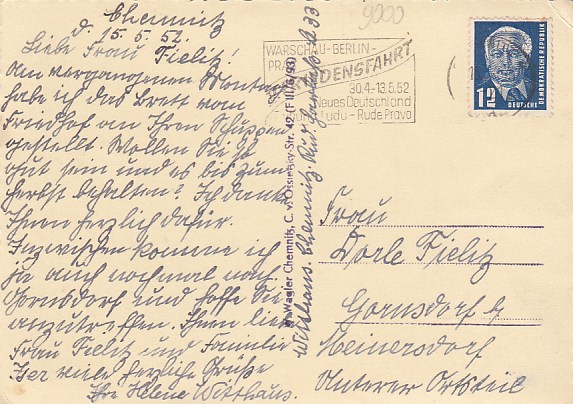 Chemnitz
d. 15.5.52.
Liebe Frau Fielitz!
Am vergangenen Montag
habe ich das Brett vom
Friedhof an Ihren Schuppen
gestellt. Wollen Sie so
gut sein und es bis zum
Herbst behalten? Ich danke
Ihnen herzlich dafür.
Inzwischen komme ich
ja auch nochmal nach
Gornsdorf und hoffe Sie
anzutreffen. Ihnen liebe
Frau Fielitz und Familie
viele herzliche Grüße
Ihre Helene Witthaus.
Witthaus. Chemnitz. 33
Wagler Chemnitz, C. v. Ossietzky-Str. 42 (F III/6/93)
9000
WARSCHAU-BERLIN-
PRAG
FRIEDENSFAHRT
30.4.-13.5.52
Neues Deutschland
Ludu - Rude Pravo
12
DEUTSCHE
DEMOKRATISCHE REPUBLIK
Frau
Dorle Fielitz
Gornsdorf
Meinersdorf
Unterer Ortsteil